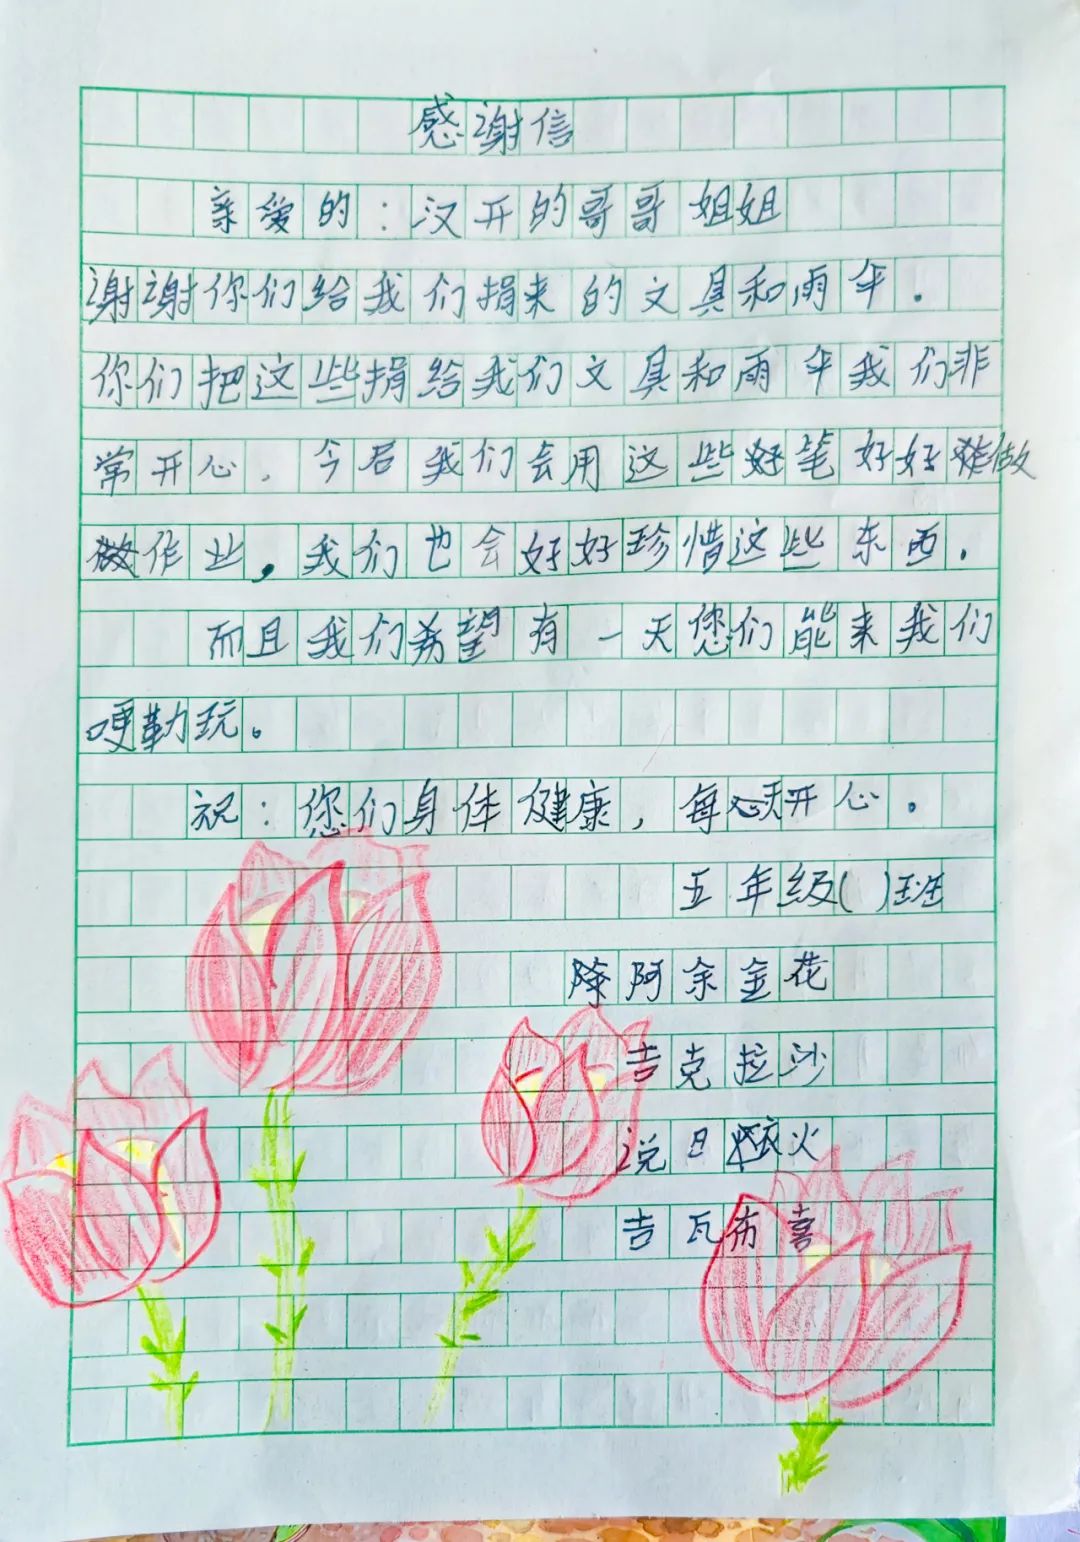 感谢信
亲爱的：汉开的哥哥姐姐
谢谢你们给我们捐来的文具和雨伞.
你们把这些捐给我们文具和雨伞我们非
常开心. 今后我们会用这些好笔好好做
作业,我们也会好好珍惜这些东西.
而且我们希望有一天您们能来我们
哽勒玩。
祝：您们身体健康,每天开心。
五年级( )班
阿余金花
吉克拉沙
说日 火
吉瓦布喜